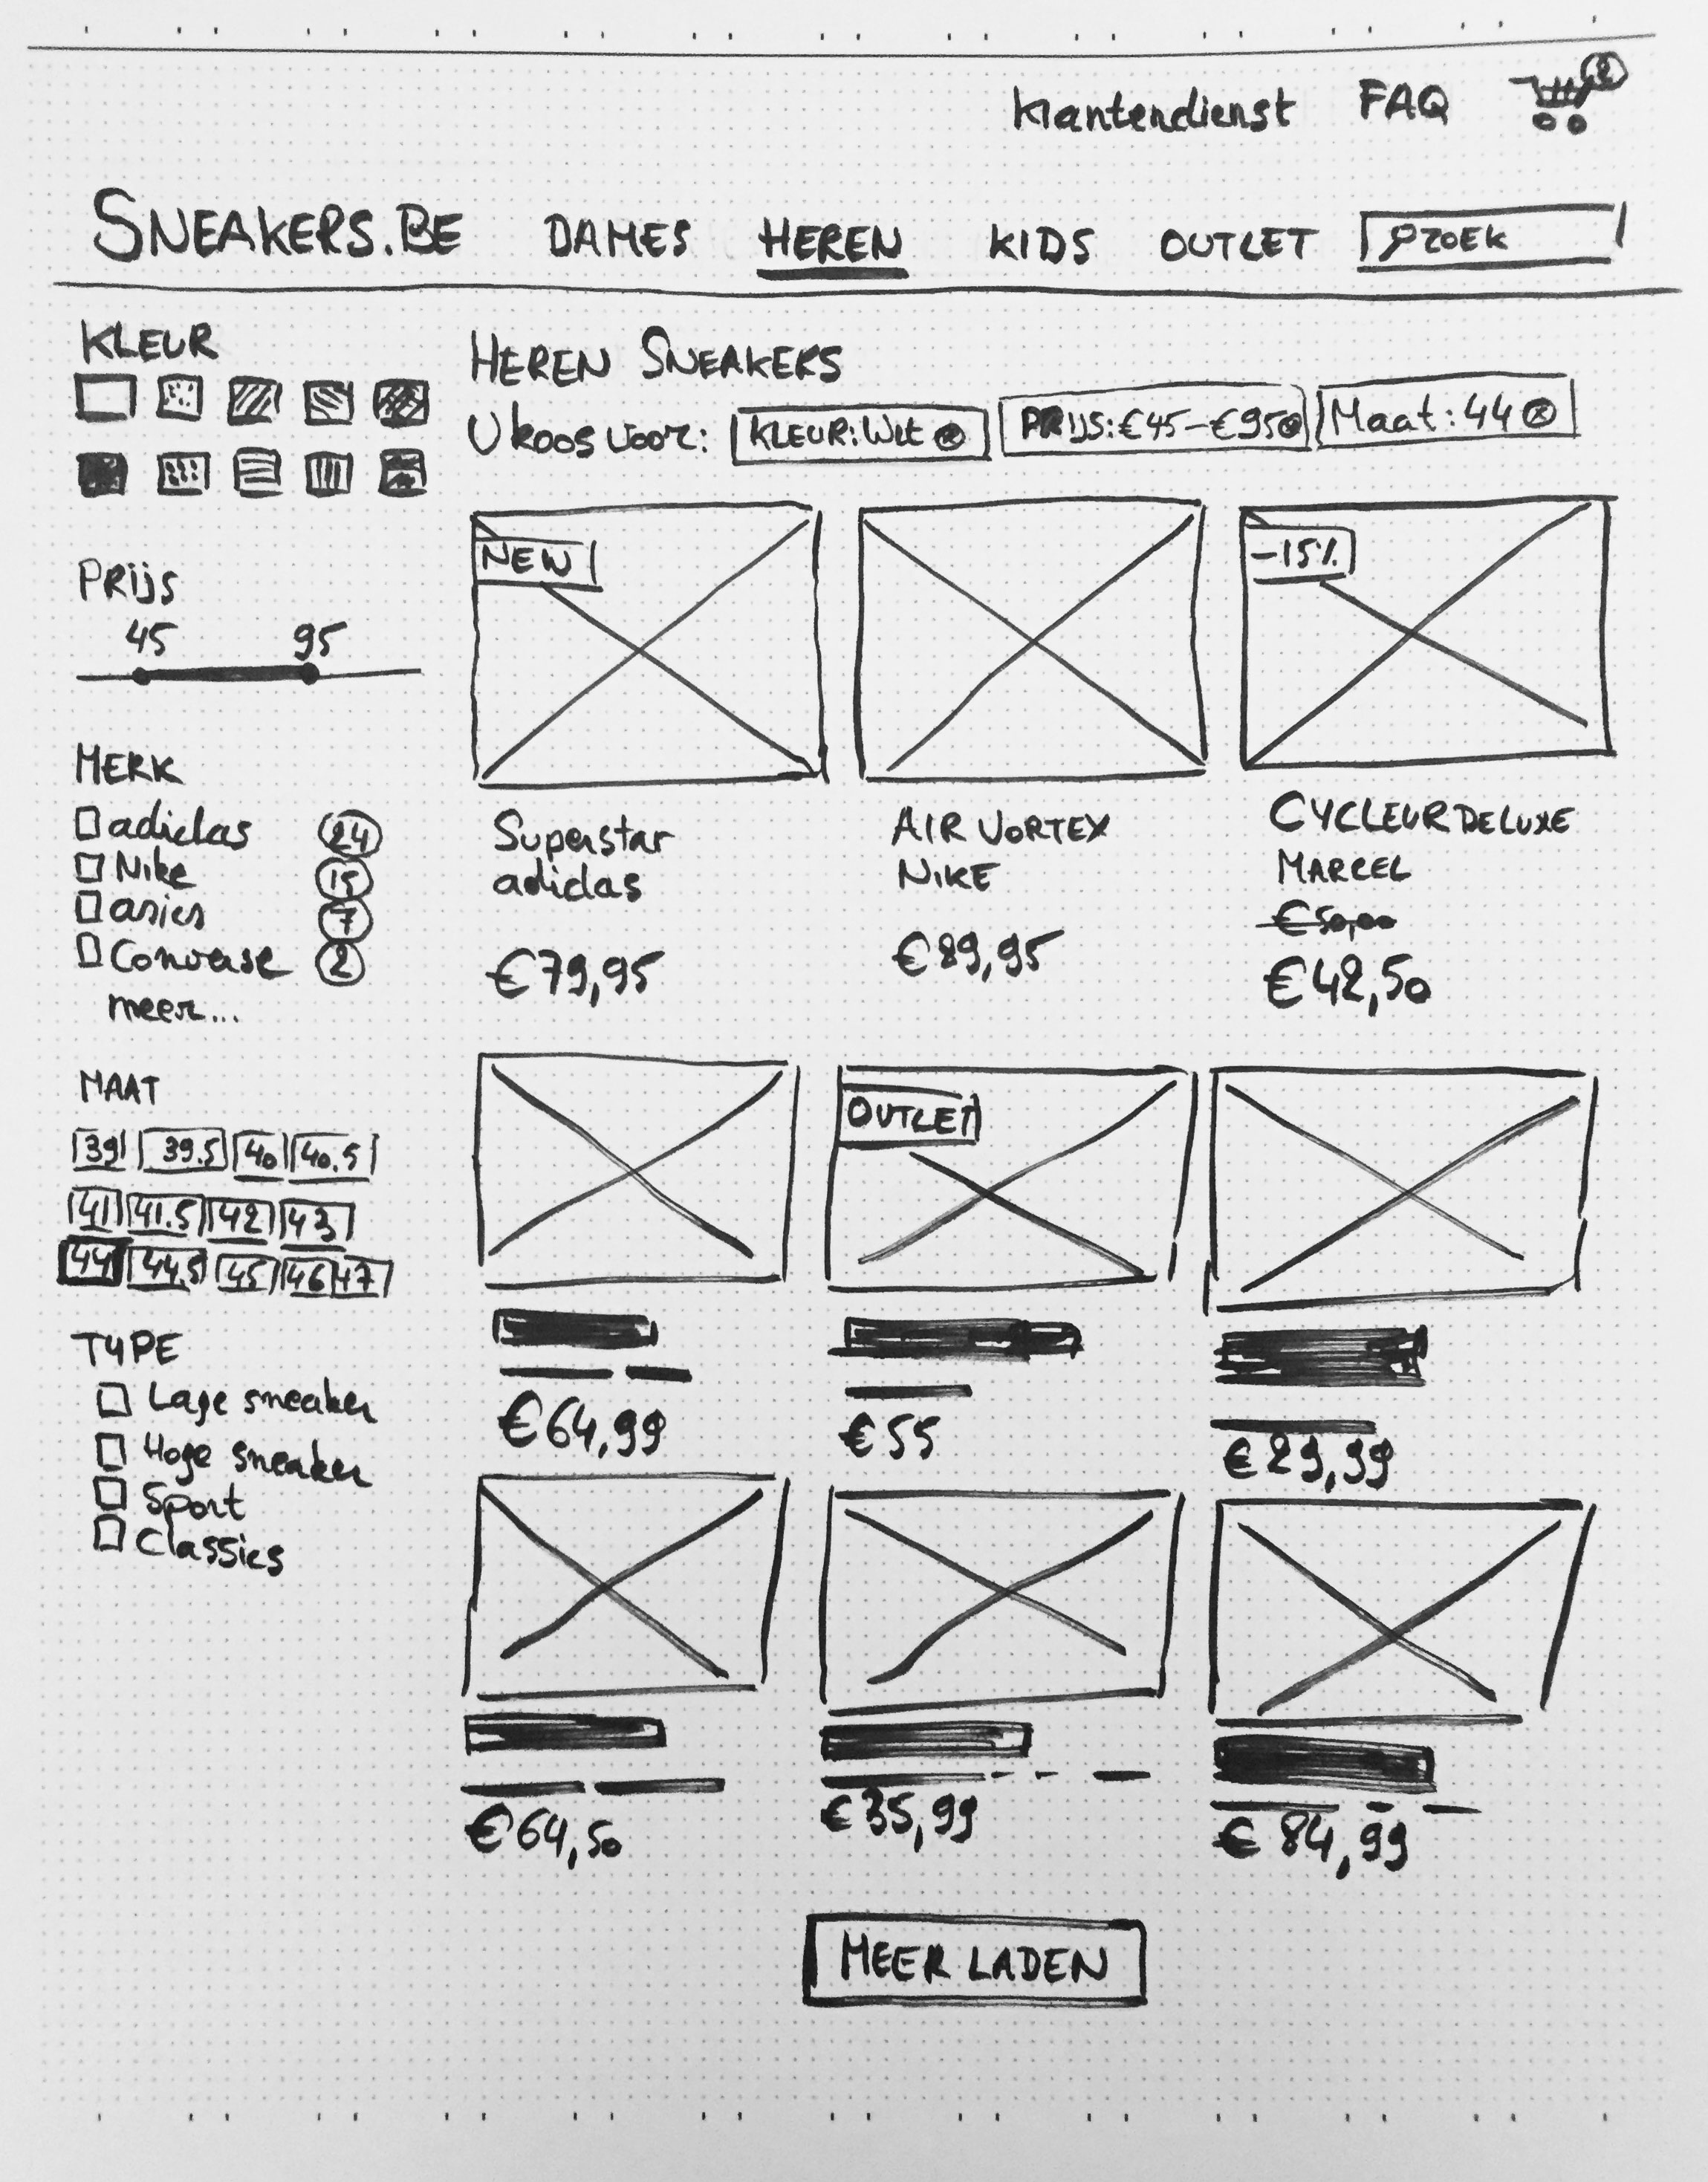 Klantendienst FAQ 2
SNEAKERS.BE DAMES HEREN KIDS OUTLET ZOEK
KLEUR
PRIJS
45 95
MERK
adidas 24
Nike 15
asics 7
Converse 2
meer...
MAAT
39 39.5 40 40.5
41 41.5 42 43
44 44.5 45 46 47
TYPE
Lage sneaker
Hoge sneaker
Sport
Classics
HEREN SNEAKERS
U koos voor: KLEUR: Wit x PRIJS: €45-€95 x Maat: 44 x
NEW
-15%
Superstar
adidas
€79,95
AIR VORTEX
NIKE
€89,95
CYCLEUR DE LUXE
MARCEL
€50,00
€42,50
OUTLET
€64,99
€55
€29,99
€64,50
€35,99
€84,99
MEER LADEN